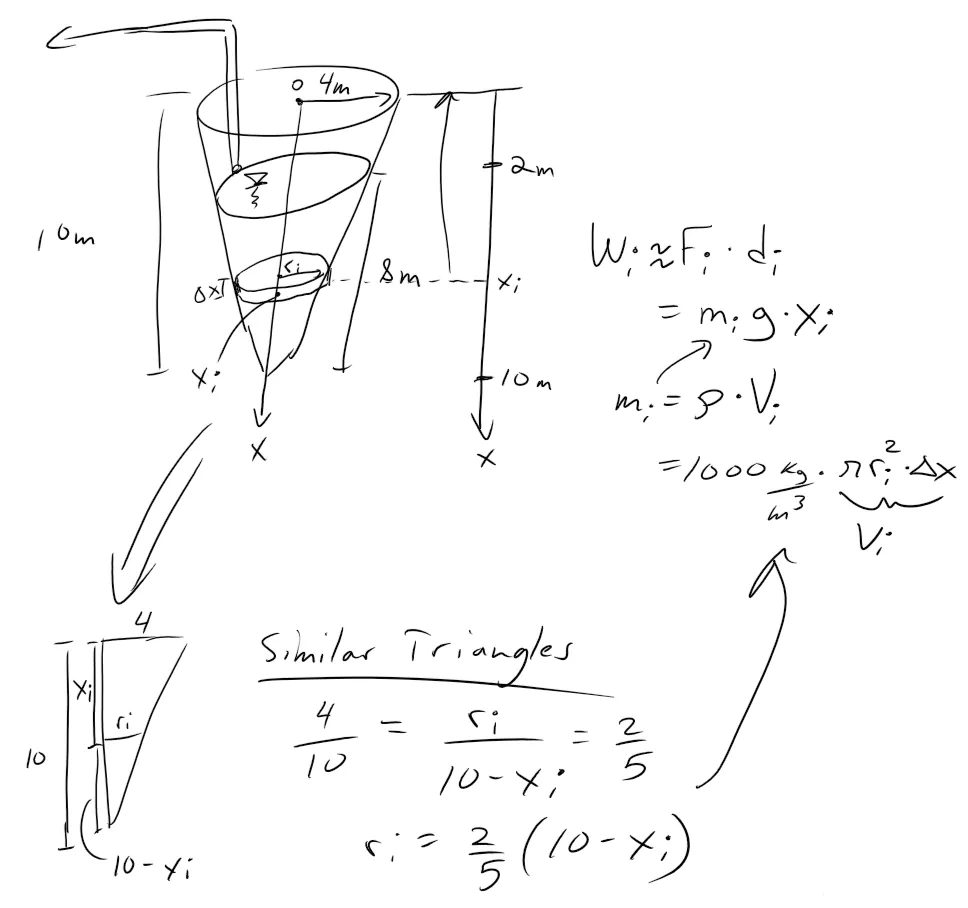 0 4m
2m
10m
ri
8m
xi
Δx
xi
10m
x
x
Wi ≈ Fi · di
= mi g · xi
mi = ρ · Vi
= 1000 kg/m³ · πri² · Δx
Vi
4
xi
ri
10
10 - xi
Similar Triangles
4/10 = ri/(10 - xi) = 2/5
ri = 2/5 (10 - xi)